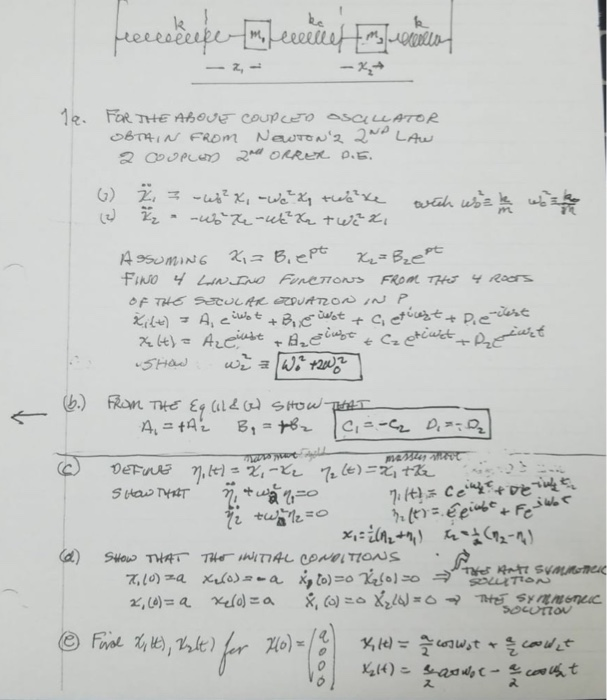 k kc k
m₁ m₂
— x₁ — — x₂→
1a. FOR THE ABOVE COUPLED OSCILLATOR
OBTAIN FROM NEWTON'S 2ND LAW
2 COUPLED 2nd ORDER D.E.
(1) ẍ₁ = -ω₀²x₁ - ωc²x₁ + ωc²x₂ with ω₀² ≡ k/m ωc² ≡ kc/m
(2) ẍ₂ = -ω₀²x₂ - ωc²x₂ + ωc²x₁
ASSUMING x₁ = B₁e^pt x₂ = B₂e^pt
FIND 4 LIN. IND FUNCTIONS FROM THE 4 ROOTS
OF THE SECULAR EQUATION IN P
x₁(t) = A₁e^iω₀t + B₁e^-iω₀t + C₁e^+iω₂t + D₁e^-iω₂t
x₂(t) = A₂e^iω₀t + B₂e^-iω₀t + C₂e^+iω₂t + D₂e^-iω₂t
SHOW ω₂² ≡ ω₀² + 2ω₀²
(b.) FROM THE Eq (1) & (2) SHOW THAT
A₁ = +A₂ B₁ = +B₂ C₁ = -C₂ D₁ = -D₂
(c) DEFINE η₁(t) = x₁ - x₂ η₂(t) = x₁ + x₂
SHOW THAT η̈₁ + ω₂²η₁ = 0 η₁(t) = Ce^iω₂t + De^-iω₂t
η̈₂ + ω₀²η₂ = 0 η₂(t) = Ee^iω₀t + Fe^-iω₀t
x₁ = ½(η₂ + η₁) x₂ = ½(η₂ - η₁)
(d) SHOW THAT THE INITIAL CONDITIONS
x₁(0) = a x₂(0) = -a ẋ₁(0) = 0 ẋ₂(0) = 0 ⇒ THE ANTI SYMMETRIC
SOLUTION
x₁(0) = a x₂(0) = a ẋ₁(0) = 0 ẋ₂(0) = 0 → THE SYMMETRIC
SOLUTION
(e) Find x₁(t), x₂(t) for X(0) = (a 0 0 0) x₁(t) = a/2 cosω₀t + a/2 cosω₂t
x₂(t) = a/2 cosω₀t - a/2 cosω₂t